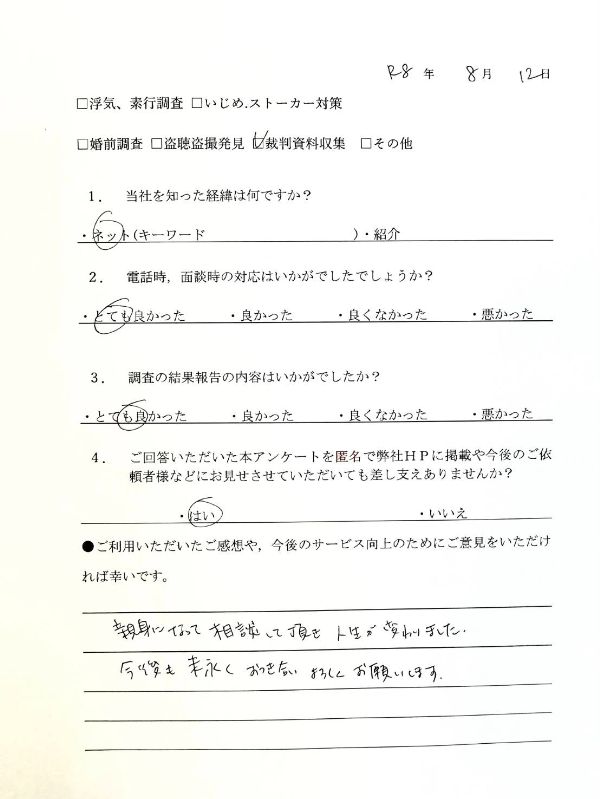 R8 年 8月 12日
□浮気、素行調査 □いじめ.ストーカー対策
□婚前調査 □盗聴盗撮発見 ☑裁判資料収集 □その他
１． 当社を知った経緯は何ですか？
・ネット(キーワード )・紹介
２． 電話時，面談時の対応はいかがでしたでしょうか？
・とても良かった ・良かった ・良くなかった ・悪かった
３． 調査の結果報告の内容はいかがでしたか？
・とても良かった ・良かった ・良くなかった ・悪かった
４． ご回答いただいた本アンケートを匿名で弊社ＨＰに掲載や今後のご依
頼者様などにお見せさせていただいても差し支えありませんか？
・はい ・いいえ
●ご利用いただいたご感想や，今後のサービス向上のためにご意見をいただけ
れば幸いです。
親身になって 相談して頂き 人生が 変わりました.
今後も 末永く おつき合い よろしく お願いします.